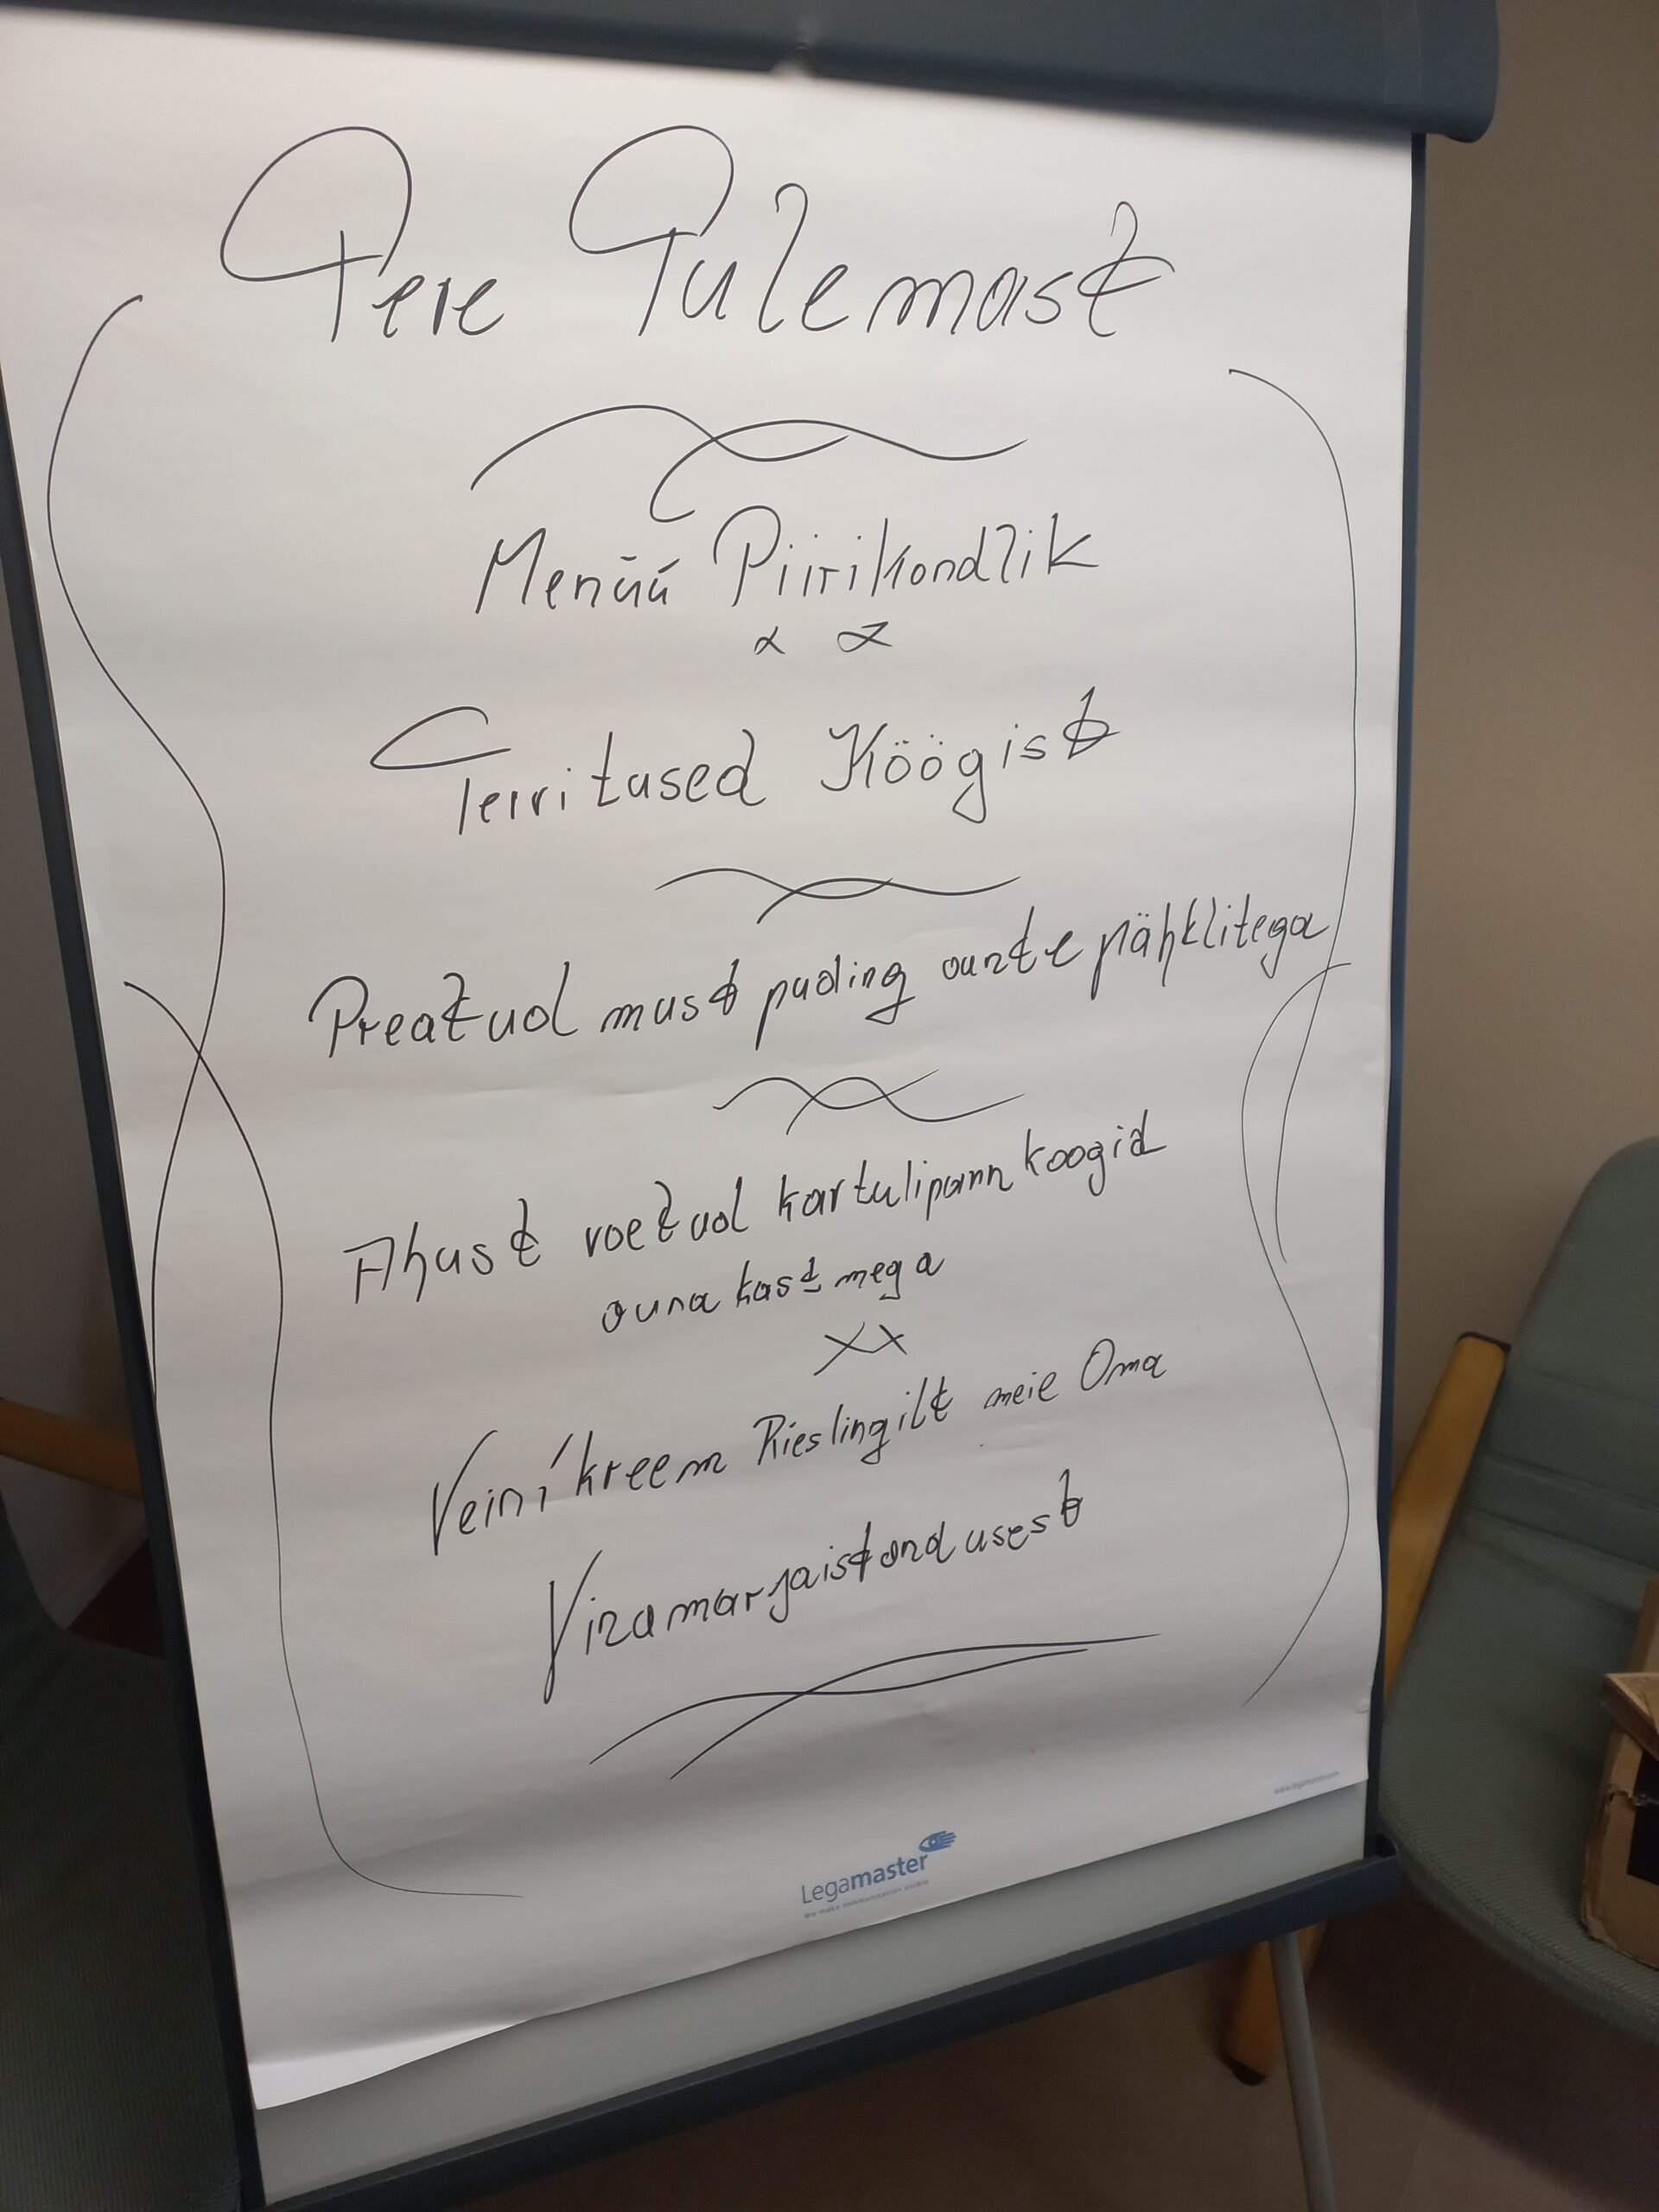 Tere Tulemast
Menüü Piirikondlik
Territused Köögist
Preatud must puding ounte pähklitega
Ahust voetud kartulipannkoogid
ouna kastmega
Veini kreem Rieslingilt meie Oma
Vinamarjaistandusest
Legamaster
We make communication visible
www.legamaster.com